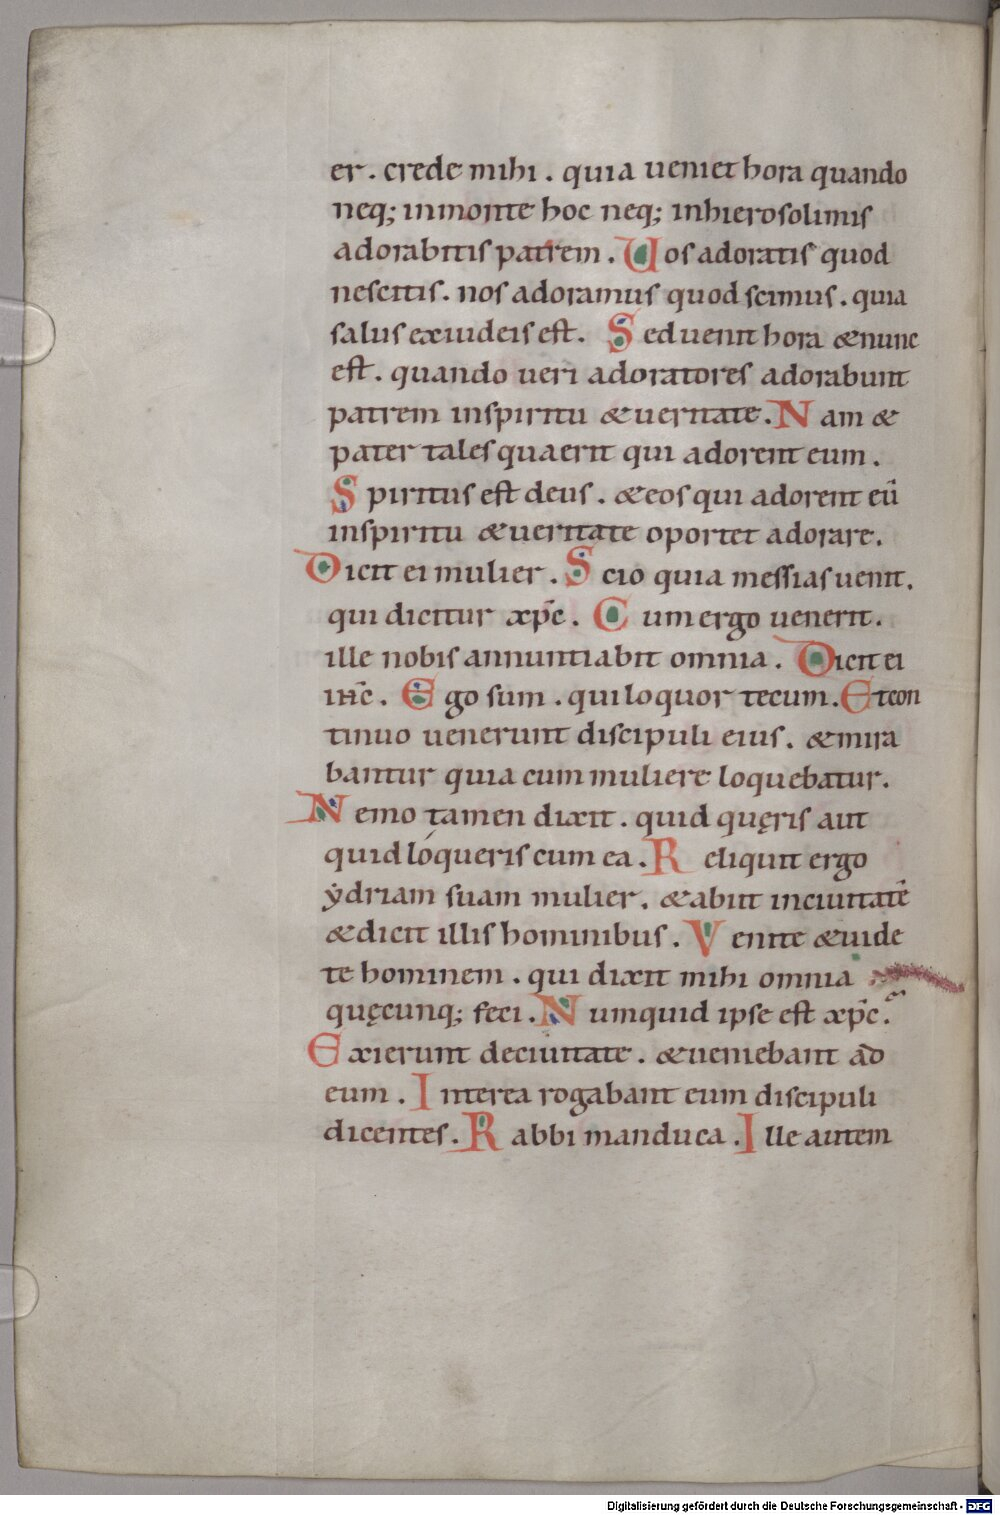 er . crede mihi . quia ueniet hora quando
neq; inmonte hoc neq; inhierosolimis
adorabitis patrem . Uos adoratis quod
nescitis . nos adoramus quod scimus . quia
salus exiudeis est . Sed uenit hora & nunc
est . quando ueri adoratores adorabunt
patrem inspiritu & ueritate . Nam &
pater tales quaerit qui adorent eum .
Spiritus est deus . & eos qui adorent eū
inspiritu & ueritate oportet adorare .
Dicit ei mulier . Scio quia messias uenit .
qui dicitur xp̄c . Cum ergo uenerit .
ille nobis annuntiabit omnia . Dicit ei
ih̄c . Ego sum . qui loquor tecum . Et con
tinuo uenerunt discipuli eius . & mira
bantur quia cum muliere loquebatur .
Nemo tamen dixit . quid quęris aut
quid lóqueris cum ea . Reliquit ergo
ẏdriam suam mulier . & abiit inciuitatē
& dicit illis hominibus . Venite & uide
te hominem . qui dixit mihi omnia
quęcunq; feci . Numquid ipse est xp̄c .
Exierunt deciuitate . & ueniebant ad
eum . Interea rogabant eum discipuli
dicentes . Rabbi manduca . Ille autem
Digitalisierung gefördert durch die Deutsche Forschungsgemeinschaft - DFG